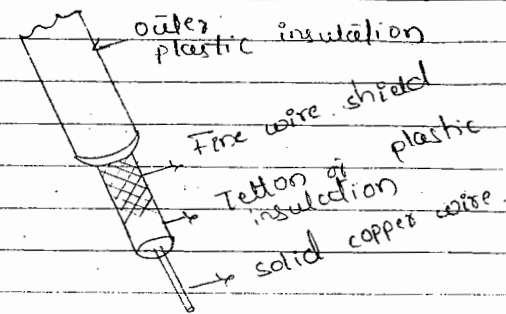 outer
plastic insulation
Fine wire shield
Teflon or plastic
insulation
solid copper wire